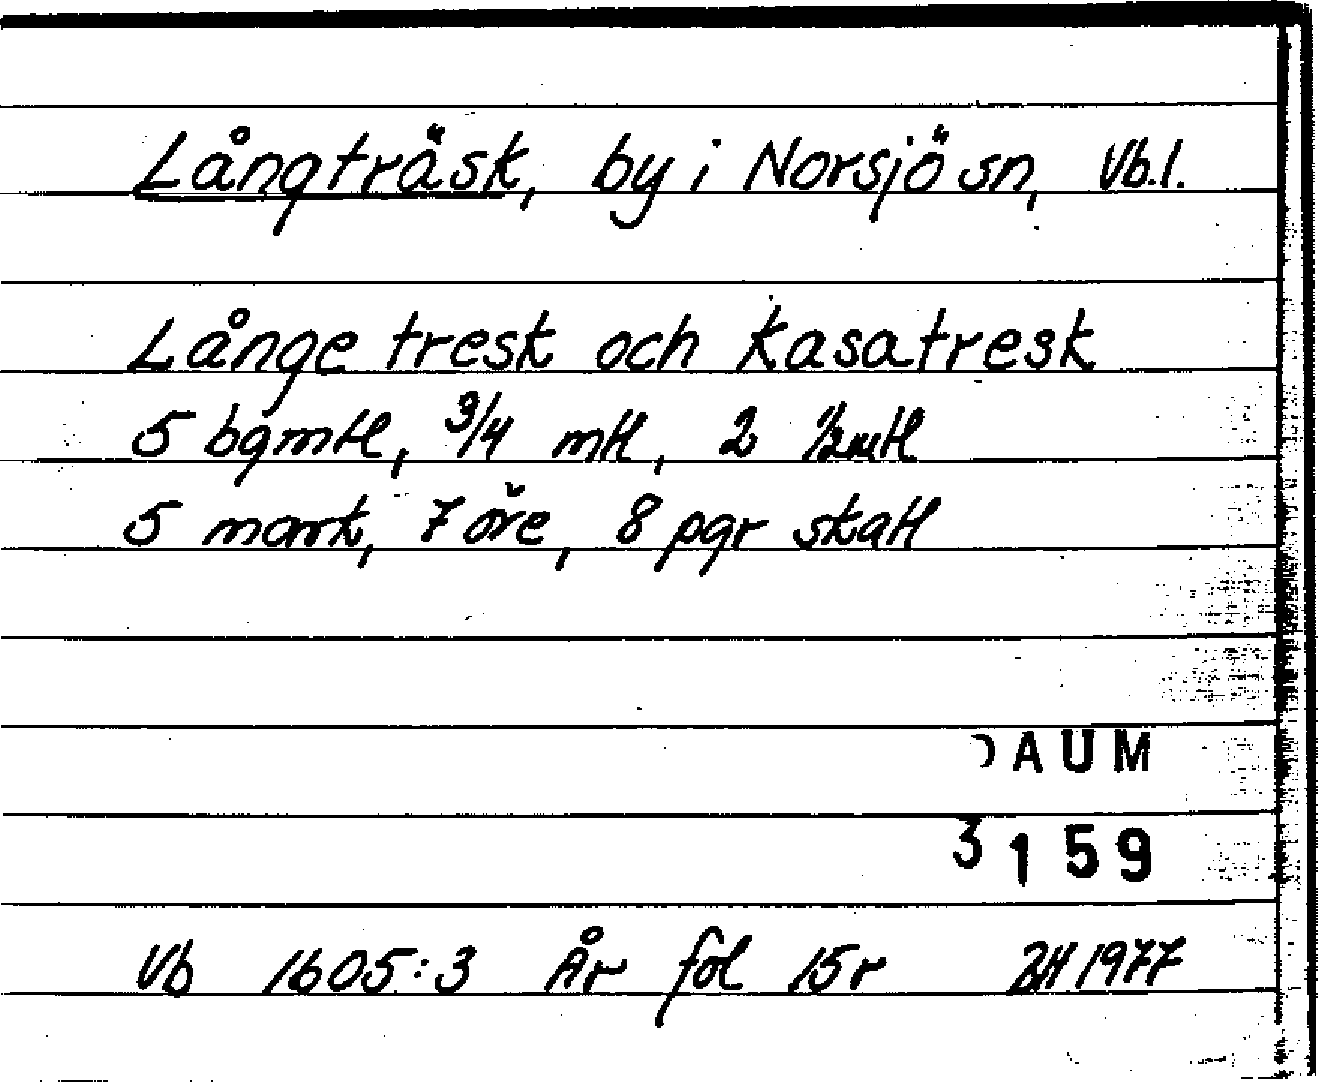 Långträsk, by i Norsjö sn, Vb.l.
Långe tresk och Kasatresk
5 bgmtl, 3/4 mtl, 2 1/2mtl
5 mark, 7 öre, 8 pgr skatt
DAUM
3159
Vb 1605:3 År fol 15r BH 1977